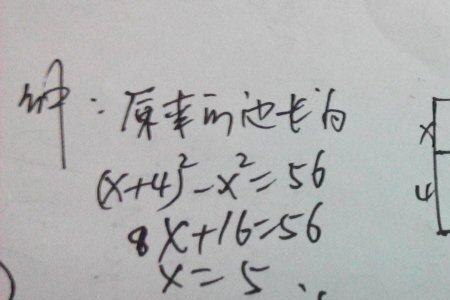 解：原来的边长为
(x+4)²-x²=56
8x+16=56
x=5
x
4